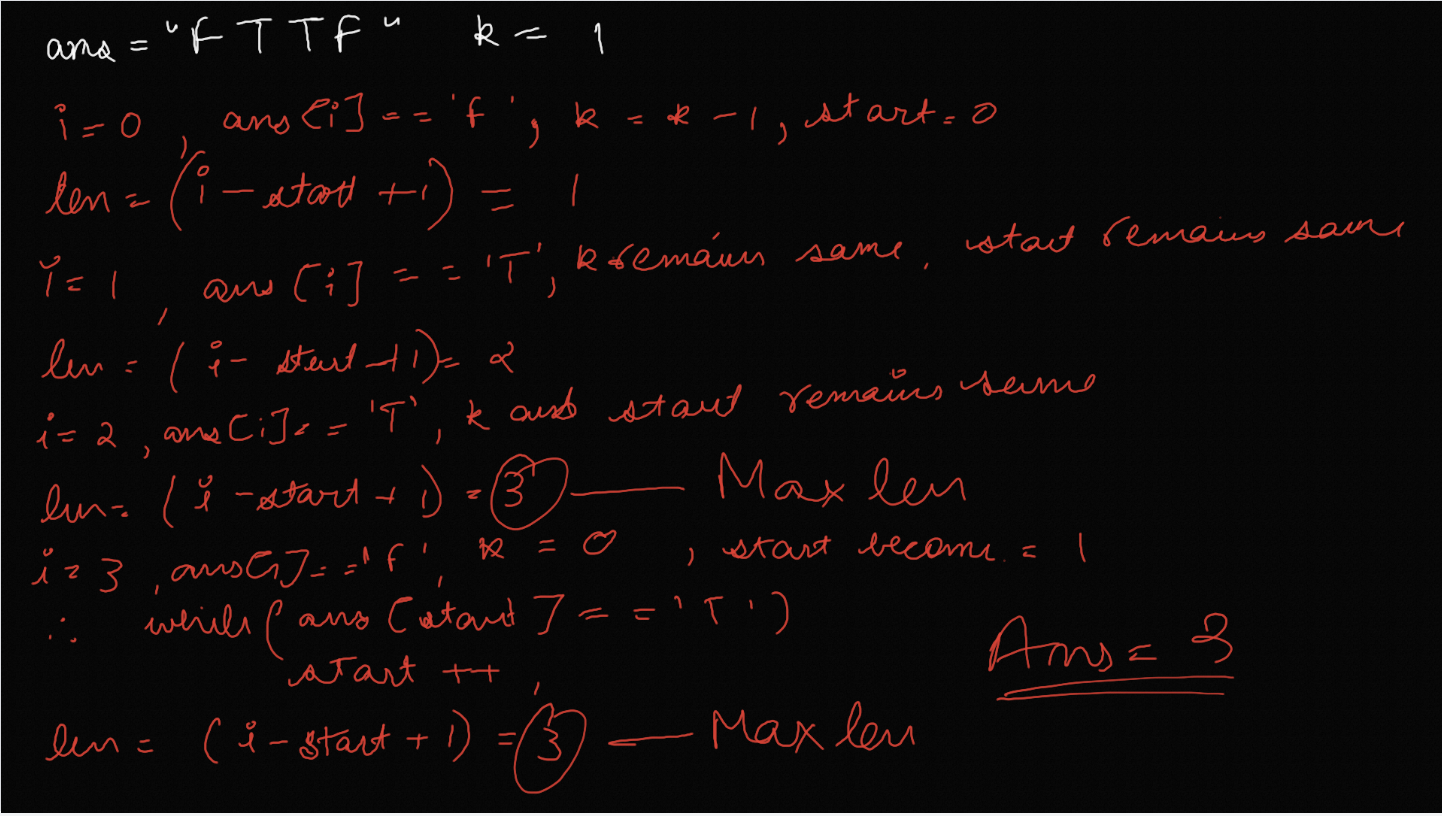 ans = "F T T F" k = 1
i=0, ans[i] == 'f', k = k - 1, start = 0
len = (i - start + 1) = 1
i = 1, ans[i] == 'T', k remains same, start remains same
len = (i - start + 1) = 2
i = 2, ans[i] == 'T', k and start remains same
len = (i - start + 1) = 3 — Max len
i = 3, ans[i] == 'f', k = 0, start become = 1
∴ while (ans[start] == 'T')
start ++,
Ans = 3
len = (i - start + 1) = 3 — Max len